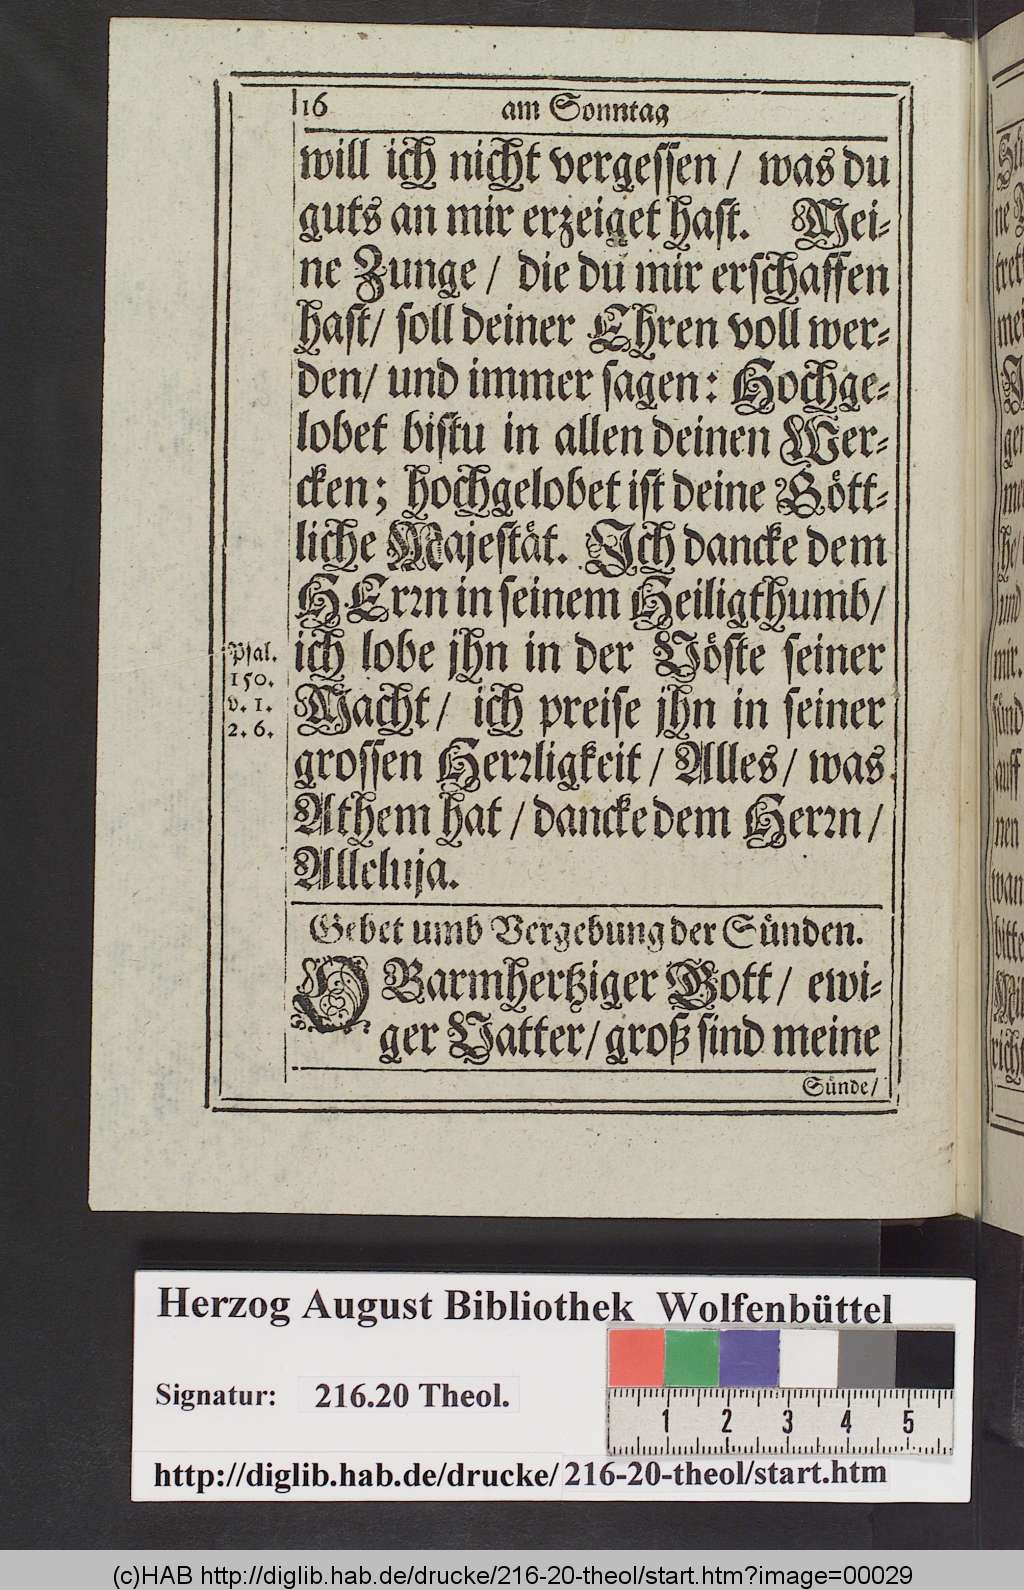 16 am Sonntag
will ich nicht vergessen / was du
guts an mir erzeiget hast. Mei-
ne Zunge / die du mir erschaffen
hast / soll deiner Ehren voll wer-
den / und immer sagen: Hochge-
lobet bistu in allen deinen Wer-
cken; hochgelobet ist deine Gött-
liche Majestät. Ich dancke dem
HErrn in seinem Heiligthumb /
ich lobe jhn in der Vöste seiner
Macht / ich preise jhn in seiner
grossen Herrligkeit / Alles / was
Athem hat / dancke dem Herrn /
Alleluja.
Psal.
150.
v. 1.
2. 6.
Gebet umb Vergebung der Sünden.
O Barmhertziger Gott / ewi-
ger Vatter / groß sind meine
Sünde /
Herzog August Bibliothek Wolfenbüttel
Signatur: 216.20 Theol.
1 2 3 4 5
http://diglib.hab.de/drucke/216-20-theol/start.htm
(c)HAB http://diglib.hab.de/drucke/216-20-theol/start.htm?image=00029